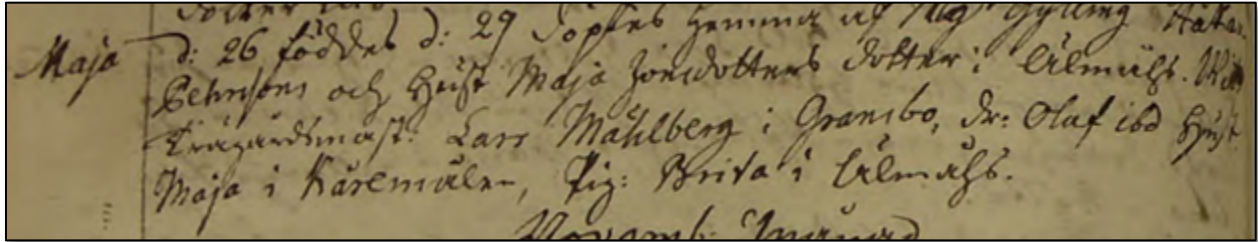 Maja
d: 26 föddes d: 29 döptes hemma af Mag Gylling
Pehrsons och Hust Maja Jonsdotters dotter i Elmåhs.
Trägårdsmäst: Lars Mahlberg i Gransbo, dr: Olaf ibd Hust
Maja i Kåremålen, Pig: Brita i Elmåhs.
Novemb: Månad